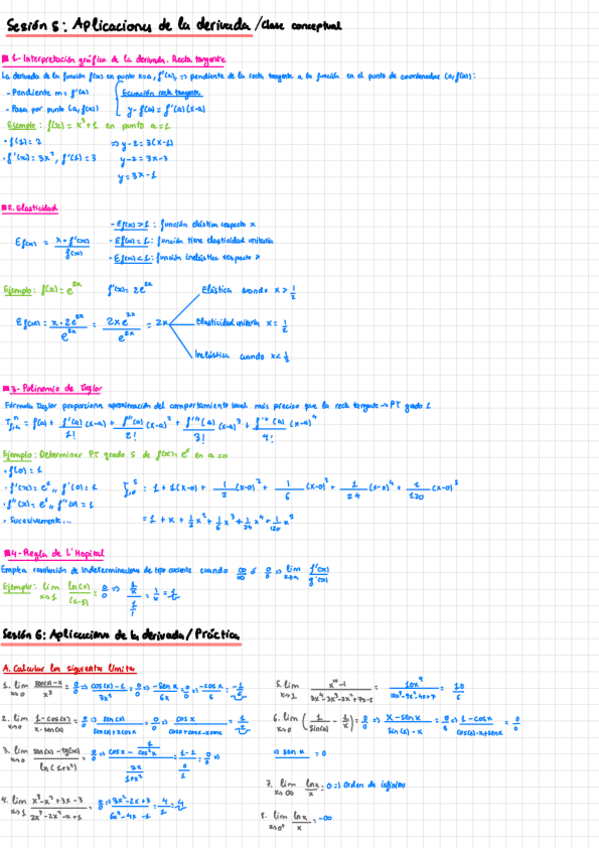 Sesión 5: Aplicaciones de la derivada / clase conceptual
1- Interpretación gráfica de la derivada. Recta tangente
La derivada de la función f(x) en punto x=a, f'(a), => pendiente de la recta tangente a la función en el punto de coordenadas (a, f(a)):
- Pendiente m = f'(a)
Ecuación recta tangente
- Pasa por punto (a, f(a))
y - f(a) = f'(a)(x-a)
Ejemplo: f(x) = x³+1 en punto a=1
· f(1) = 2
=> y-2 = 3(x-1)
· f'(x) = 3x², f'(1) = 3
y-2 = 3x-3
y = 3x-1
2. Elasticidad
Ef(x) = x · f'(x) / f(x)
- Ef(x) > 1: función elástica respecto x
- Ef(x) = 1: función tiene elasticidad unitaria
- Ef(x) < 1: función inelástica respecto x
Ejemplo: f(x) = e^2x
f'(x) = 2e^2x
Ef(x) = x · 2e^2x / e^2x = 2xe^2x / e^2x = 2x
Elástica cuando x > 1/2
Elasticidad unitaria x = 1/2
Inelástica cuando x < 1/2
3- Polinomio de Taylor
Fórmula Taylor proporciona aproximación del comportamiento local más preciso que la recta tangente -> PT grado 1
= f(a) + f'(a)/1! (x-a) + f''(a)/2! (x-a)² + f'''(a)/3! (x-a)³ + (x-a)⁴
Ejemplo: Determinar PT grado 5 de f(x) = e^x en a=0
· f(0) = 1
· f'(x) = e^x,, f'(0) = 1
= 1 + 1(x-0) + 1/2 (x-0)² + 1/6 (x-0)³ + 1/24 (x-0)⁴ + 1/120 (x-0)⁵
· f''(x) = e^x,, f''(0) = 1
· Sucesivamente...
= 1 + x + 1/2 x² + 1/6 x³ + 1/24 x⁴ + 1/120 x⁵
4- Regla de L'Hopital
Emplea resolución de indeterminaciones de tipo cociente cuando ∞/∞ ó 0/0 => lim x→a f'(x)/g'(x)
Ejemplo: lim x→1 ln(x) = 0/0 => = 1/x = 1
Sesión 6: Aplicaciones de la derivada / Práctica
A. Calcular los siguientes límites
1. lim x→0 sen(x)-x / x³ = 0/0 => cos(x)-1 / 3x² = 0/0 => -sen x / 6x = 0/0 => -cos x / 6 = -1/6
2. lim x→0 1-cos(x) / x·sen(x) = 0/0 => sen(x) / sen(x)+x cos x = 0/0 => cos x / cos x + cos x - x sen x = 1/2
3. lim x→0 sen(x) - tg(x) / ln(1+x²) = 0/0 => cos x - 1/cos²x / 2x/1+x² = 1-1 / 0/1 = 0/0 =>
4. lim x→1 x³-x²+3x-3 / 2x³-2x²-x+1 = 0/0 => 3x²-2x+3 / 6x²-4x-1 = 4/1 = 4
5. lim x→1 x¹⁰-1 / 3x⁴-3x³-2x²+7x-5 = 10x⁹ / 12x³-9x²-4x+7 = 10/6
6. lim x→0 (1/sen(x) - 1/x) = 0/0 => x-sen x = 0/0 => 1-cos x = 0/0
=> sen x = 0
7. lim x→∞ ln x / x = 0 => Orden de infinitos
8. lim x→0⁺ ln x / x = -∞